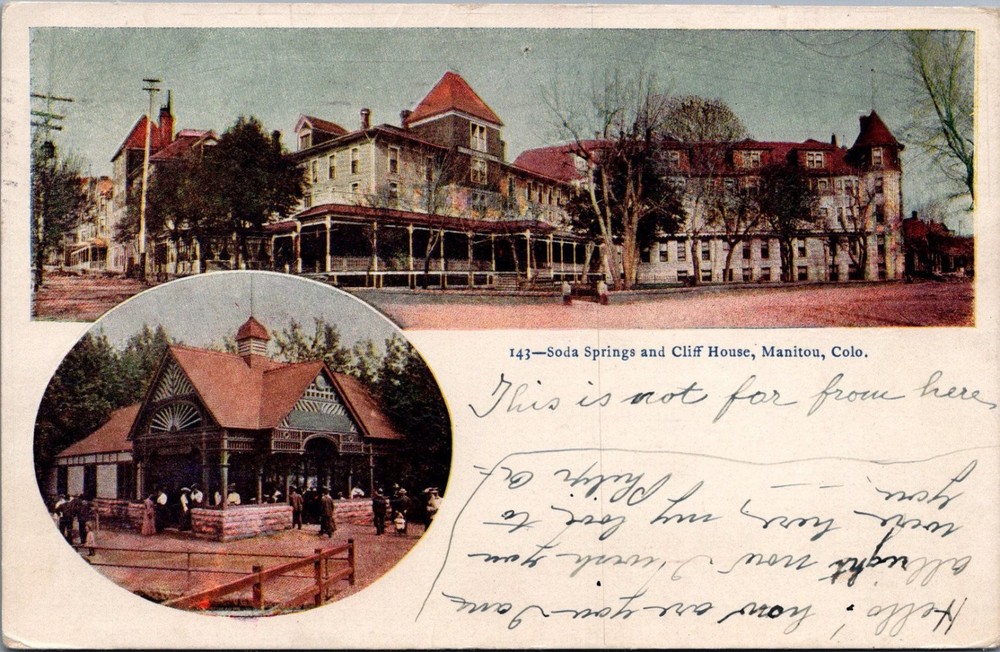 143—Soda Springs and Cliff House, Manitou, Colo.
This is not far from here,
Hello! how are you I am
allright now I wish you
were here, my love to
you — Philip A.